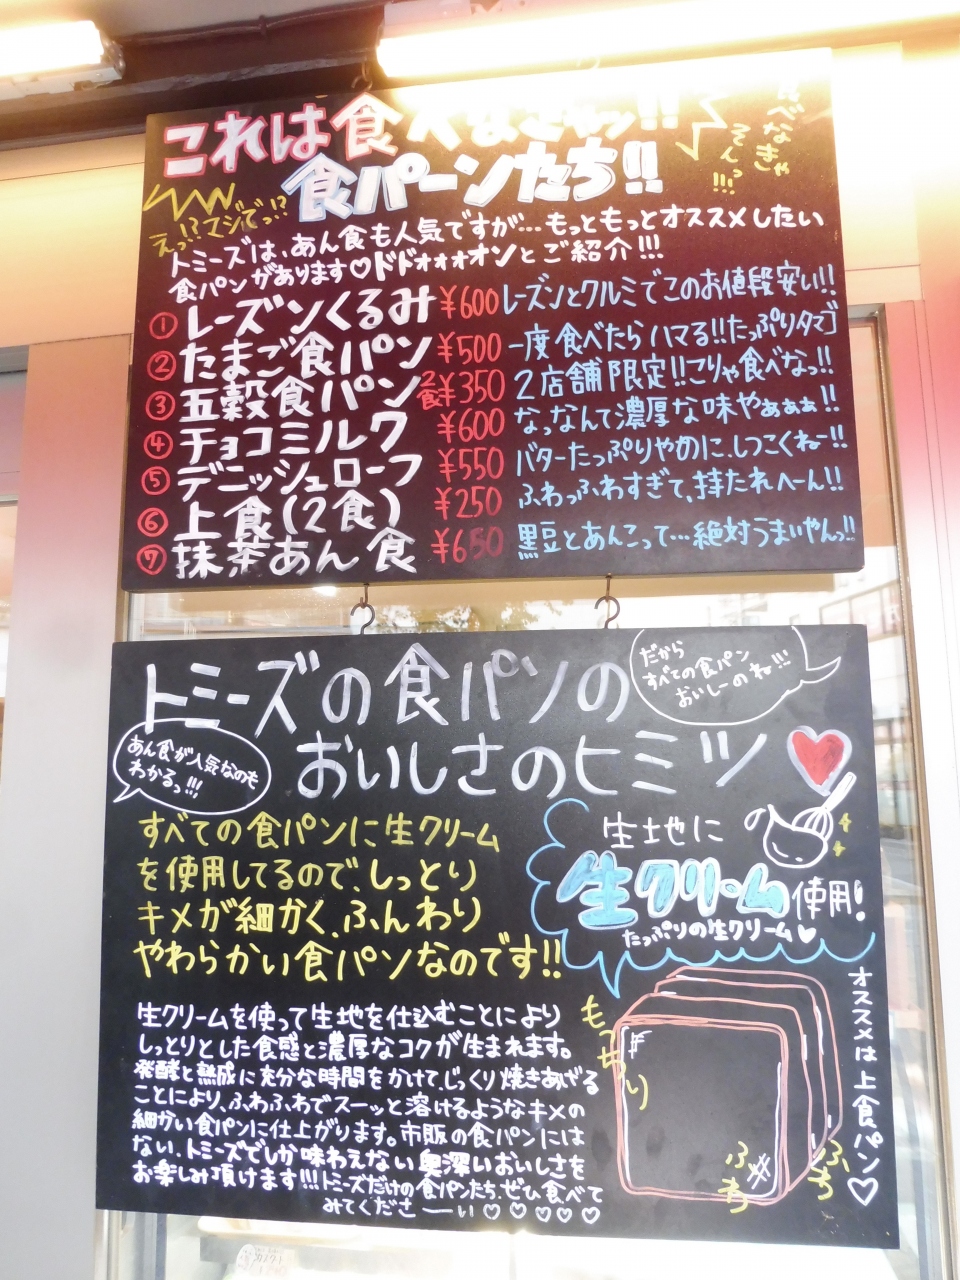 これは食べなさわッ!!
食べなきゃ
そんっ!!!
食パーンたち!!
えっ!?マジでっ!?
トミーズは、あん食も人気ですが…もっともっとオススメしたい
食パンがあります♡ドドォォォオンとご紹介!!!
① レーズンくるみ ¥600 レーズンとクルミでこのお値段安い!!
② たまご食パン ¥500 一度食べたらハマる!!たっぷりタマゴ
③ 五穀食パン 2食 ¥350 2店舗限定!!こりゃ食べなっ!!
④ チョコミルク ¥600 なっなんて濃厚な味やぁぁぁ!!
⑤ デニッシュローフ ¥550 バターたっぷりやのに、しつこくねー!!
⑥ 上食(2食) ¥250 ふわっふわすぎて、持たれへーん!!
⑦ 抹茶あん食 ¥650 黒豆とあんこって…絶対うまいやんっ!!
トミーズの食パンの
おいしさのヒミツ
だから
すべての食パン
おいしーのね!!!
あん食が人気なのも
わかるっ!!!
すべての食パンに生クリーム
を使用してるので、しっとり
キメが細かく、ふんわり
やわらかい食パンなのです!!
生地に
生クリーム使用!
たっぷりの生クリーム♥
生クリームを使って生地を仕込むことにより
しっとりとした食感と濃厚なコクが生まれます。
発酵と熟成に充分な時間をかけて、じっくり焼きあげる
ことにより、ふわふわでスーッと溶けるようなキメの
細かい食パンに仕上がります。市販の食パンには
ない、トミーズでしか味わえない奥深いおいしさを
お楽しみ頂けます!!!トミーズだけの食パンたち、ぜひ食べて
みてくださーーい♡♡♡♡♡
もっちり
ふわ
ふち
オススメは上食パン♡